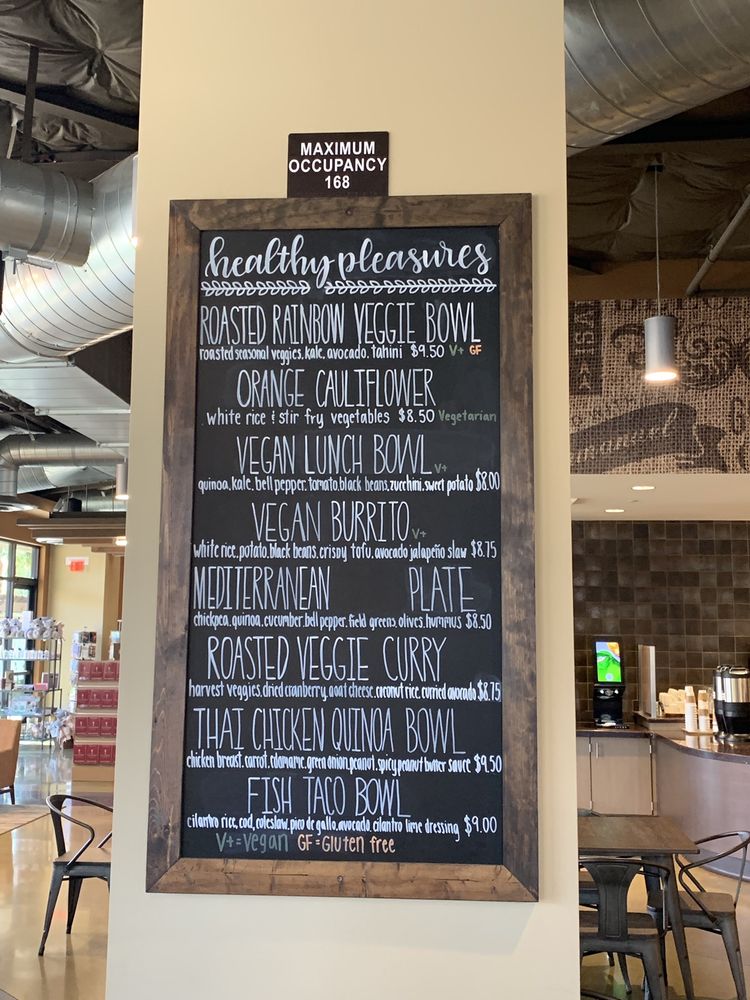 MAXIMUM
OCCUPANCY
168
healthy pleasures
ROASTED RAINBOW VEGGIE BOWL
roasted seasonal veggies, kale, avocado, tahini $9.50 V+ GF
ORANGE CAULIFLOWER
white rice & stir fry vegetables $8.50 Vegetarian
VEGAN LUNCH BOWL V+
quinoa, kale, bell pepper, tomato, black beans, zucchini, sweet potato $8.00
VEGAN BURRITO V+
white rice, potato, black beans, crispy tofu, avocado jalapeño slaw $8.75
MEDITERRANEAN PLATE
chickpea, quinoa, cucumber, bell pepper, field greens, olives, hummus $8.50
ROASTED VEGGIE CURRY
harvest veggies, dried cranberry, goat cheese, coconut rice, curried avocado $8.75
THAI CHICKEN QUINOA BOWL
chicken breast, carrot, edamame, green onion, peanut, spicy peanut butter sauce $9.50
FISH TACO BOWL
cilantro rice, cod, coleslaw, pico de gallo, avocado, cilantro lime dressing $9.00
V+ = Vegan GF = Gluten free